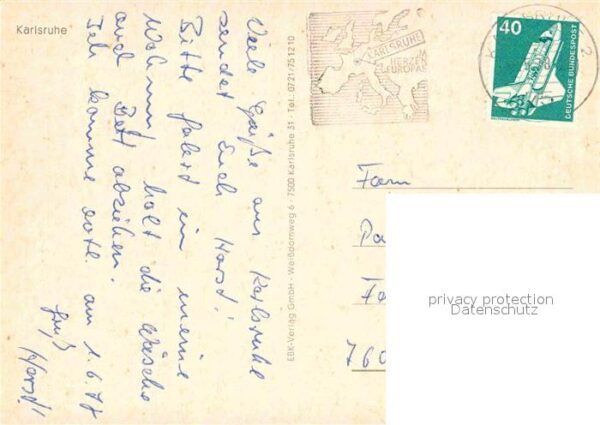 Karlsruhe
Viele Grüße aus Karlsruhe
sendet Euch Horst!
Bitte fahrt in meine
Wohnung, holt die Wäsche
und Bett abziehen.
Ich komme evtl. am 1.6.77
Gruß
Horst!
EBK-Verlag GmbH · Weißdornweg 6 · 7500 Karlsruhe 31 · Tel. 0721/751210
KARLSRUHE
IM
HERZEN
EUROPAS
40
DEUTSCHE BUNDESPOST
Fam
Pa
Fa
760
privacy protection
Datenschutz